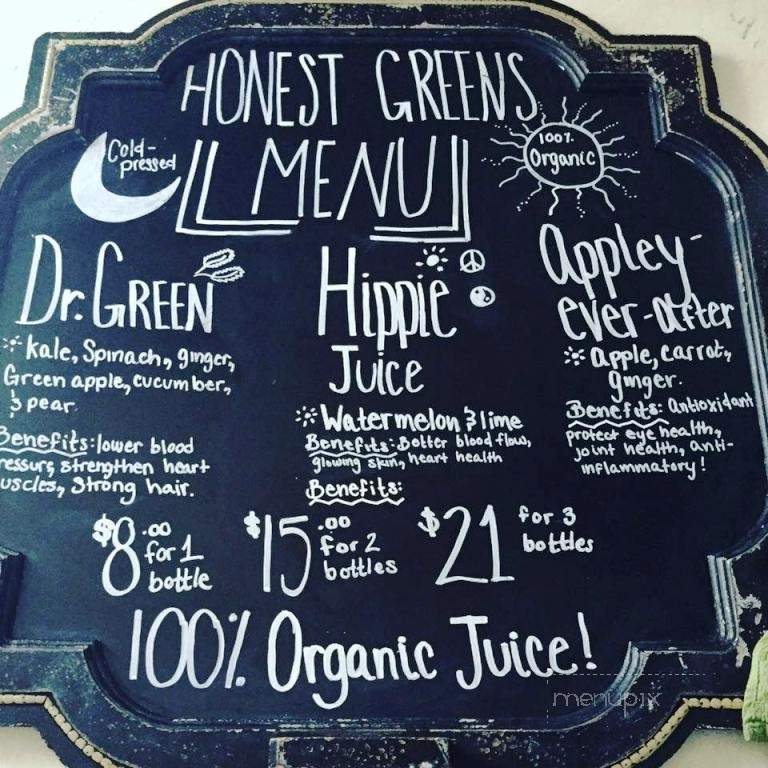 HONEST GREENS
MENU
Cold-
pressed
100%
Organic
Dr. GREEN
kale, Spinach, ginger,
Green apple, cucumber,
& pear.
Benefits: lower blood
ressure, strengthen heart
uscles, Strong hair.
Hippie
Juice
Watermelon & lime
Benefits: Better blood flow,
glowing skin, heart health
Benefits:
Appley-
ever-after
apple, carrot,
ginger.
Benefits: Antioxidant
protect eye health,
joint health, anti-
inflammatory!
$8.00
for 1
bottle
$15.00
for 2
bottles
$21 for 3
bottles
100% Organic Juice!
menupix